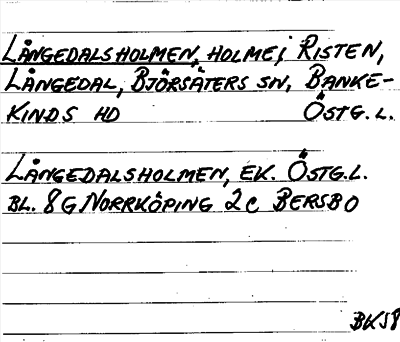 LÅNGEDALSHOLMEN, HOLME i RISTEN,
LÅNGEDAL, BJÖRSÄTERS SN, BANKE-
KINDS HD ÖSTG. L.
LÅNGEDALSHOLMEN, EK. ÖSTG.L.
BL. 8G NORRKÖPING 2c BERSBO
BK58